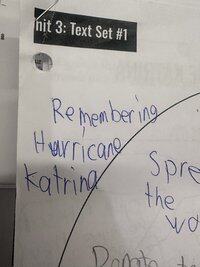 nit 3: Text Set #1
Remembering
Hurricane
Katrina
Spre
the
wo
Donate